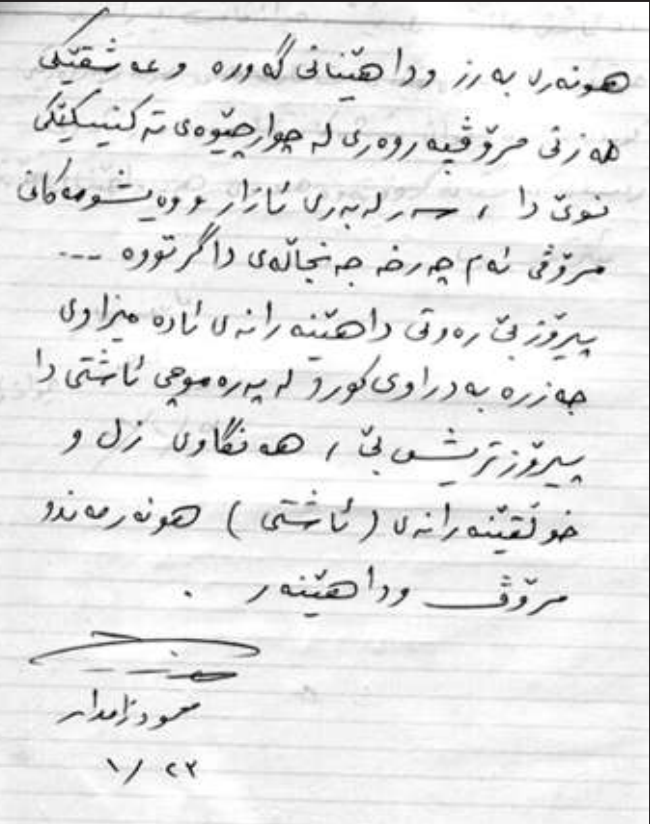 هونەری بەرز و داهێنانی گەورە و عەشقێکی
مەزنی مرۆڤپەروەری لە چوارچێوەی تەکنیکێکی
نوێ دا ، سەرلەبەری ئازار و وەیشومەکانی
مرۆڤی ئەم چەرخە جەنجاڵەی داگرتووە ...
پیرۆز بێ رەوتی داهێنەرانەی ئادەمیزاوی
جەزرەبەدراوی کورد لە پەرەموچی ئاشتی دا
پیرۆزتریش بێ ، هەنگاوی زل و
خوڵقێنەرانەی (ئاشتی) هونەرمەندو
مرۆڤ و داهێنەر .
محمود زامدار
٢٣ / ١